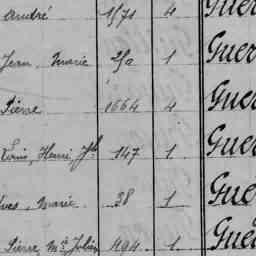 André 1571 4 Guer
Jean, Marie 1 Guer
Pierre 1664 4 Guer
Louis, Henri, Jh 147 1 Guer
Yves, Marie 38 1 Gue
Pierre, Mie Julien 494 1 Gue